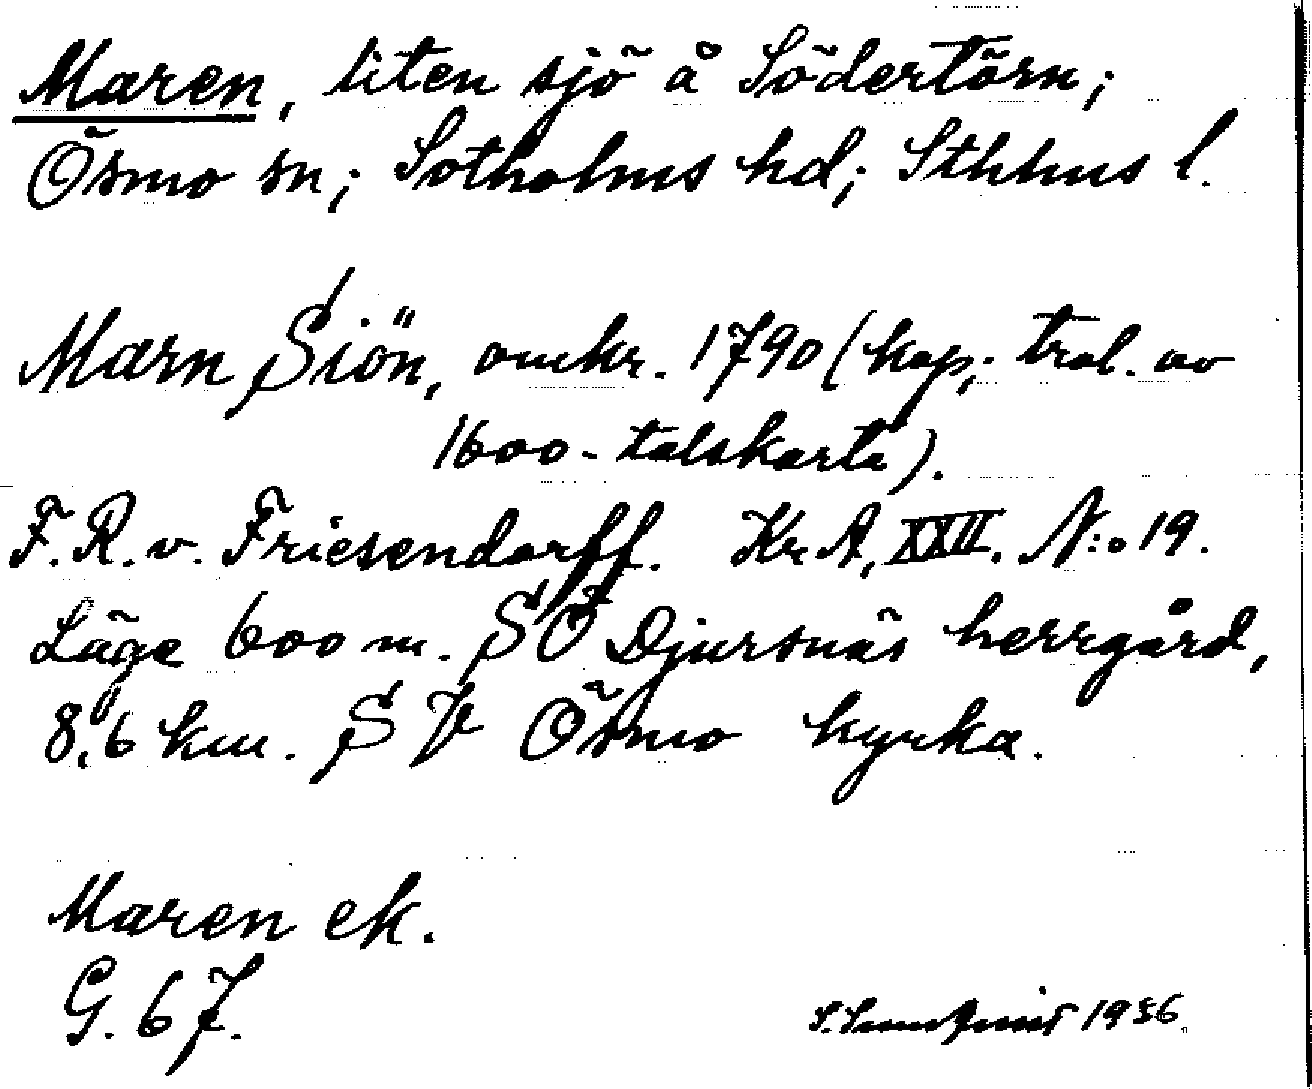 Maren, liten sjö å Södertörn;
Ösmo sn; Sotholms hd; Sthlms l.
Marn Siön, omkr. 1790 (kop; trol. av
1600-talskarta).
F. R. v. Friesendorff. Kr. A, XXII. N:o 19.
Läge 600 m. SÖ Djursnäs herrgård,
8,6 km. SV Ösmo kyrka.
Maren ek.
G. 67.
1936